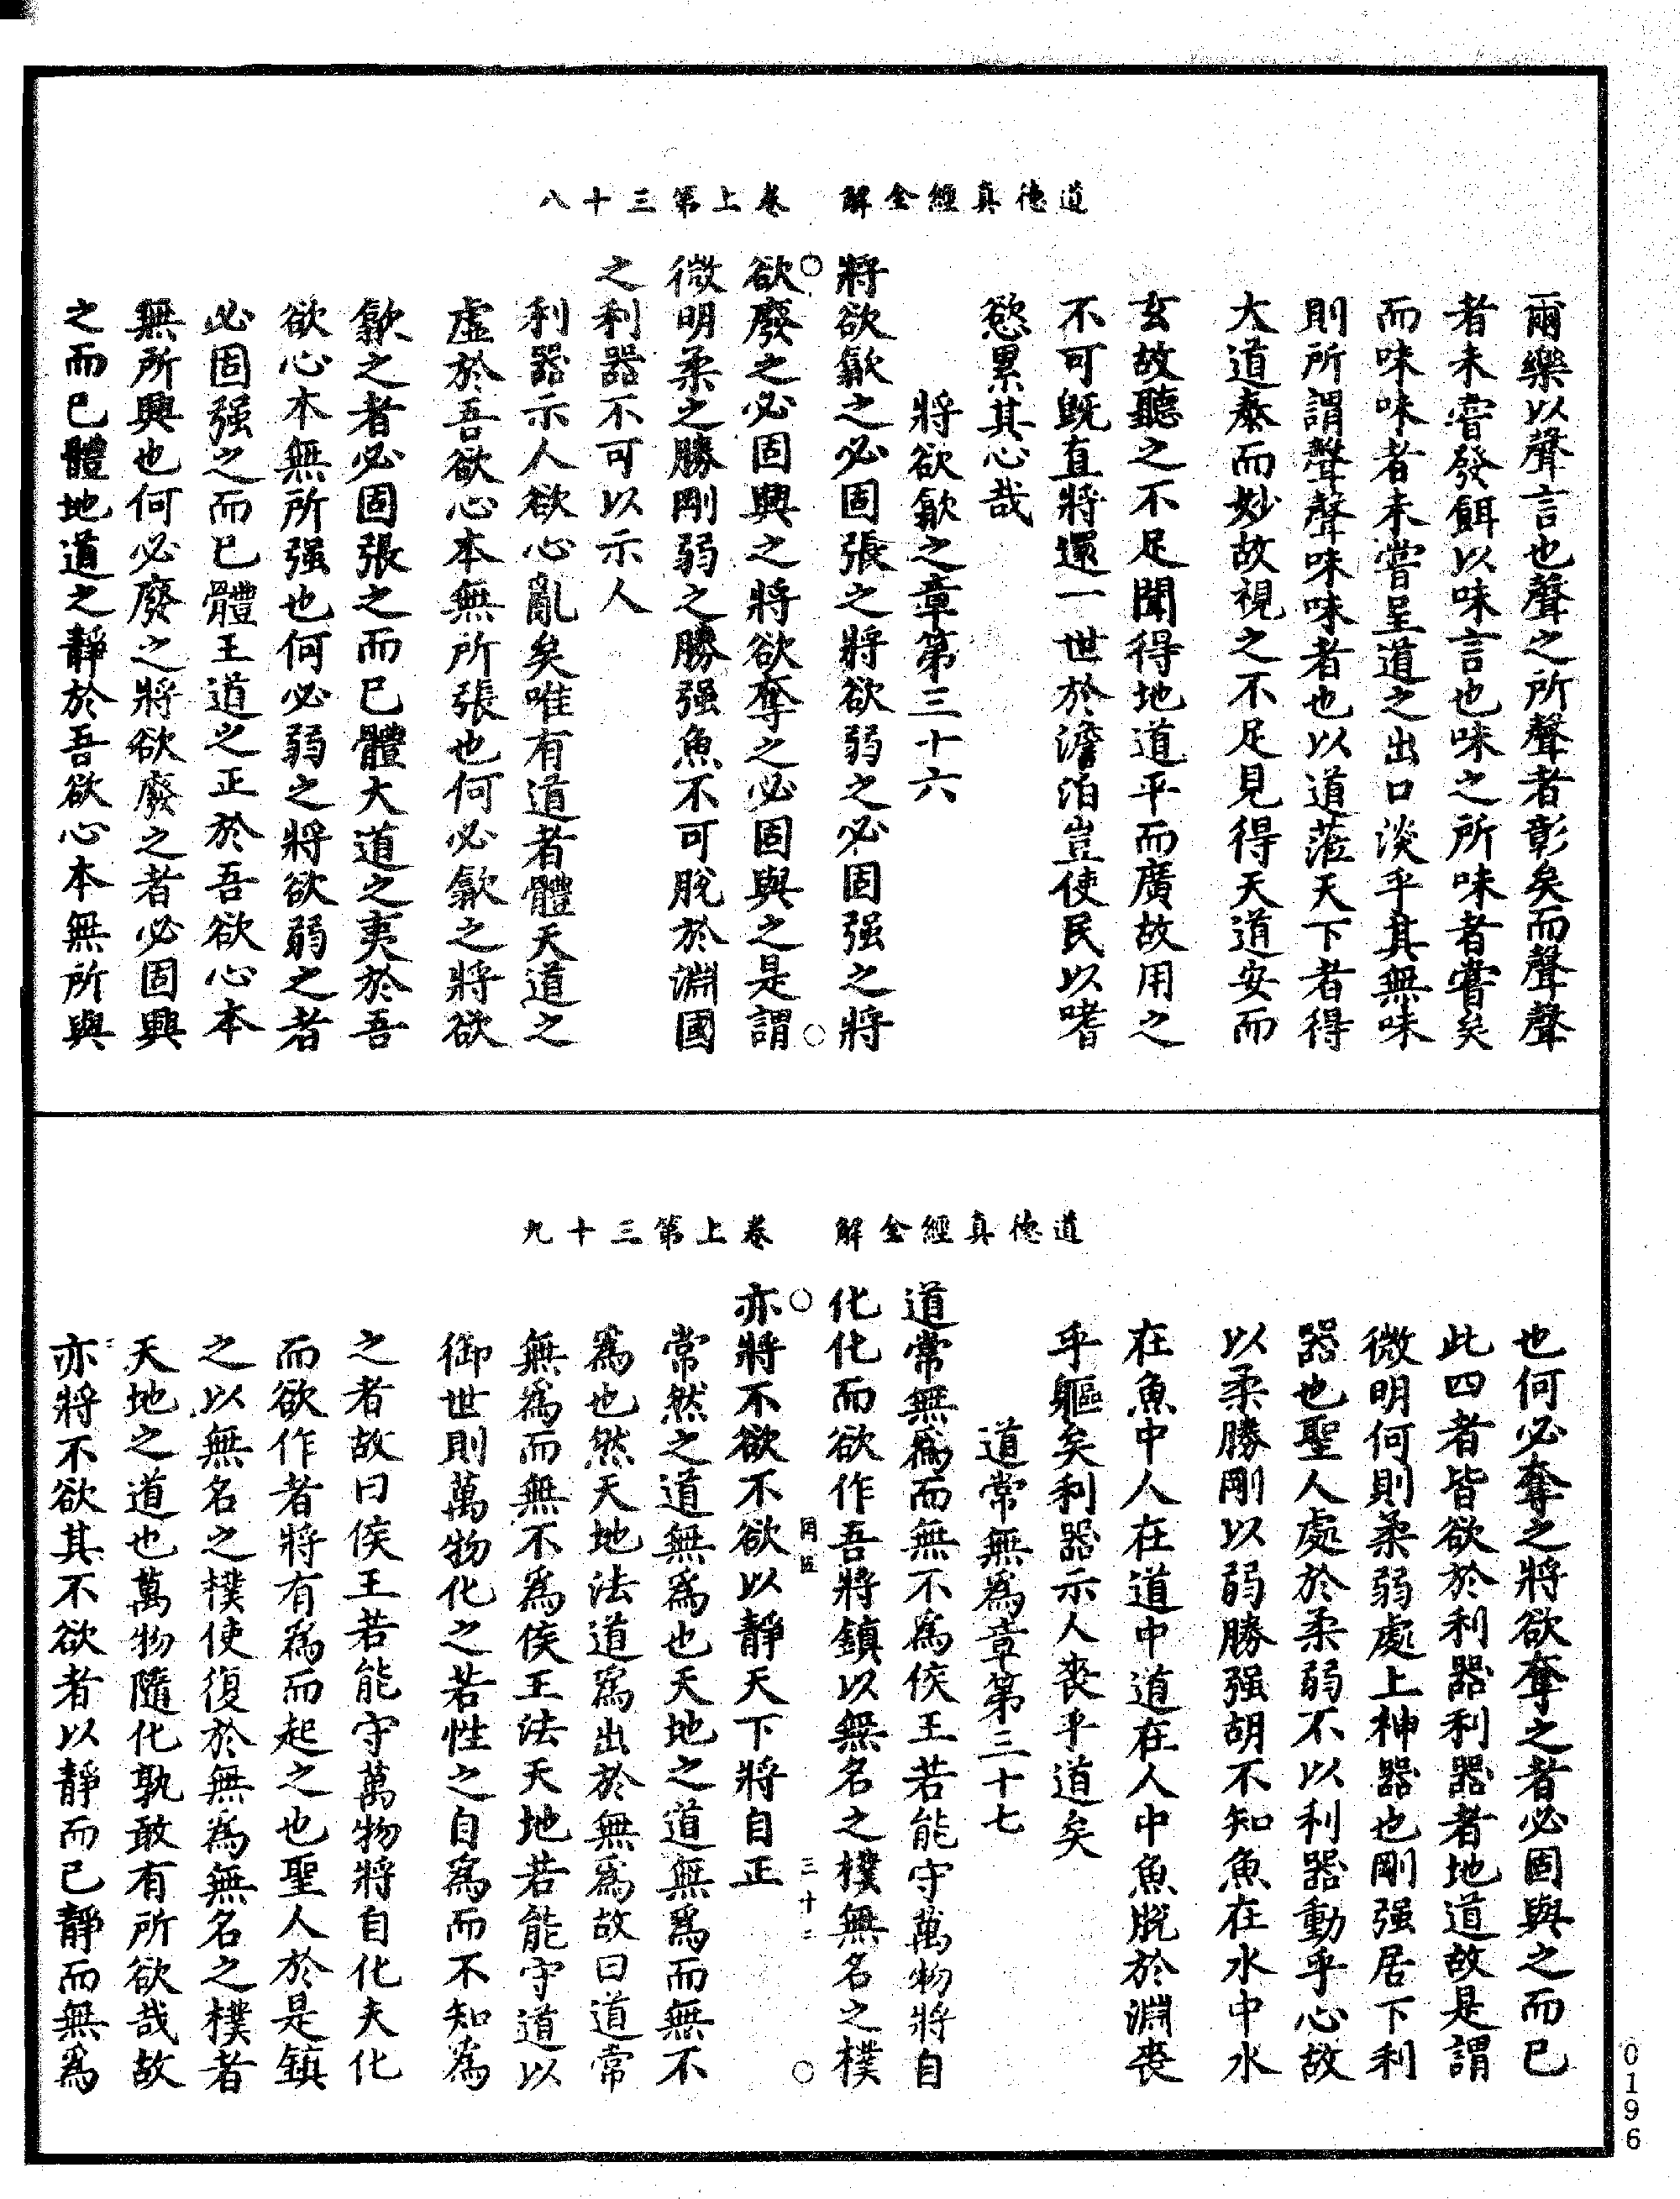 道德真經全解　卷上第三十八
爾樂以聲言也聲之所聲者彰矣而聲聲
者未嘗發餌以味言也味之所味者嘗矣
而味味者未嘗呈道之出口淡乎其無味
則所謂聲聲味味者也以道蒞天下者得
大道泰而妙故視之不足見得天道安而
玄故聽之不足聞得地道平而廣故用之
不可既直將還一世於澹泊豈使民以嗜
慾累其心哉
將欲歙之章第三十六
將欲歙之必固張之將欲弱之必固强之將
欲廢之必固興之將欲奪之必固與之是謂
微明柔之勝剛弱之勝强魚不可脫於淵國
之利器不可以示人
利器示人欲心亂矣唯有道者體天道之
虛於吾欲心本無所張也何必歙之將欲
歙之者必固張之而已體大道之夷於吾
欲心本無所强也何必弱之將欲弱之者
必固强之而已體王道之正於吾欲心本
無所興也何必廢之將欲廢之者必固興
之而已體地道之靜於吾欲心本無所與
道德真經全解　卷上第三十九
也何必奪之將欲奪之者必固與之而已
此四者皆欲於利器利器者地道故是謂
微明何則柔弱處上神器也剛强居下利
器也聖人處於柔弱不以利器動乎心故
以柔勝剛以弱勝强胡不知魚在水中水
在魚中人在道中道在人中魚脫於淵喪
乎軀矣利器示人喪乎道矣
道常無為章第三十七
道常無為而無不為侯王若能守萬物將自
化化而欲作吾將鎮以無名之樸無名之樸
亦將不欲不欲以靜天下將自正
常然之道無為也天地之道無為而無不
為也然天地法道為出於無為故曰道常
無為而無不為侯王法天地若能守道以
御世則萬物化之若性之自為而不知為
之者故曰侯王若能守萬物將自化夫化
而欲作者將有為而起之也聖人於是鎮
之以無名之樸使復於無為無名之樸者
天地之道也萬物隨化孰敢有所欲哉故
亦將不欲其不欲者以靜而已靜而無為
0196